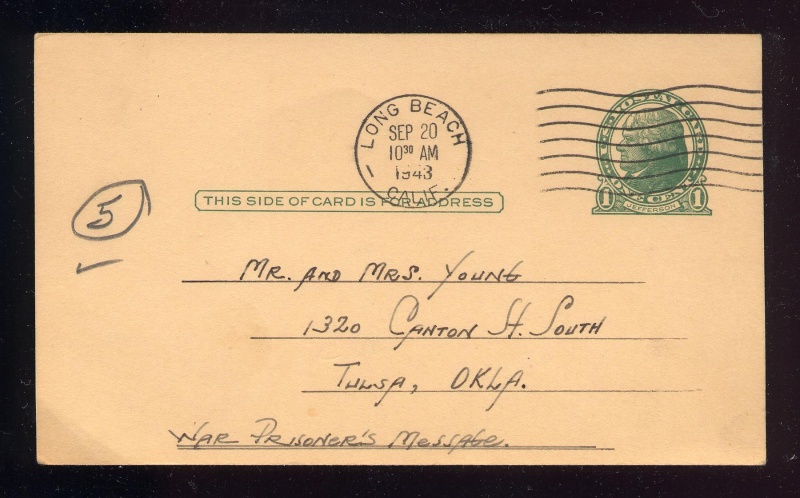 LONG BEACH
SEP 20
10³⁰ AM
1943
CALIF.
U·S·POSTAL CARD
ONE CENT
1 JEFFERSON 1
THIS SIDE OF CARD IS FOR ADDRESS
5
MR. AND MRS. YOUNG
1320 CANTON St. SOUTH
TULSA, OKLA.
WAR PRISONER'S MESSAGE.